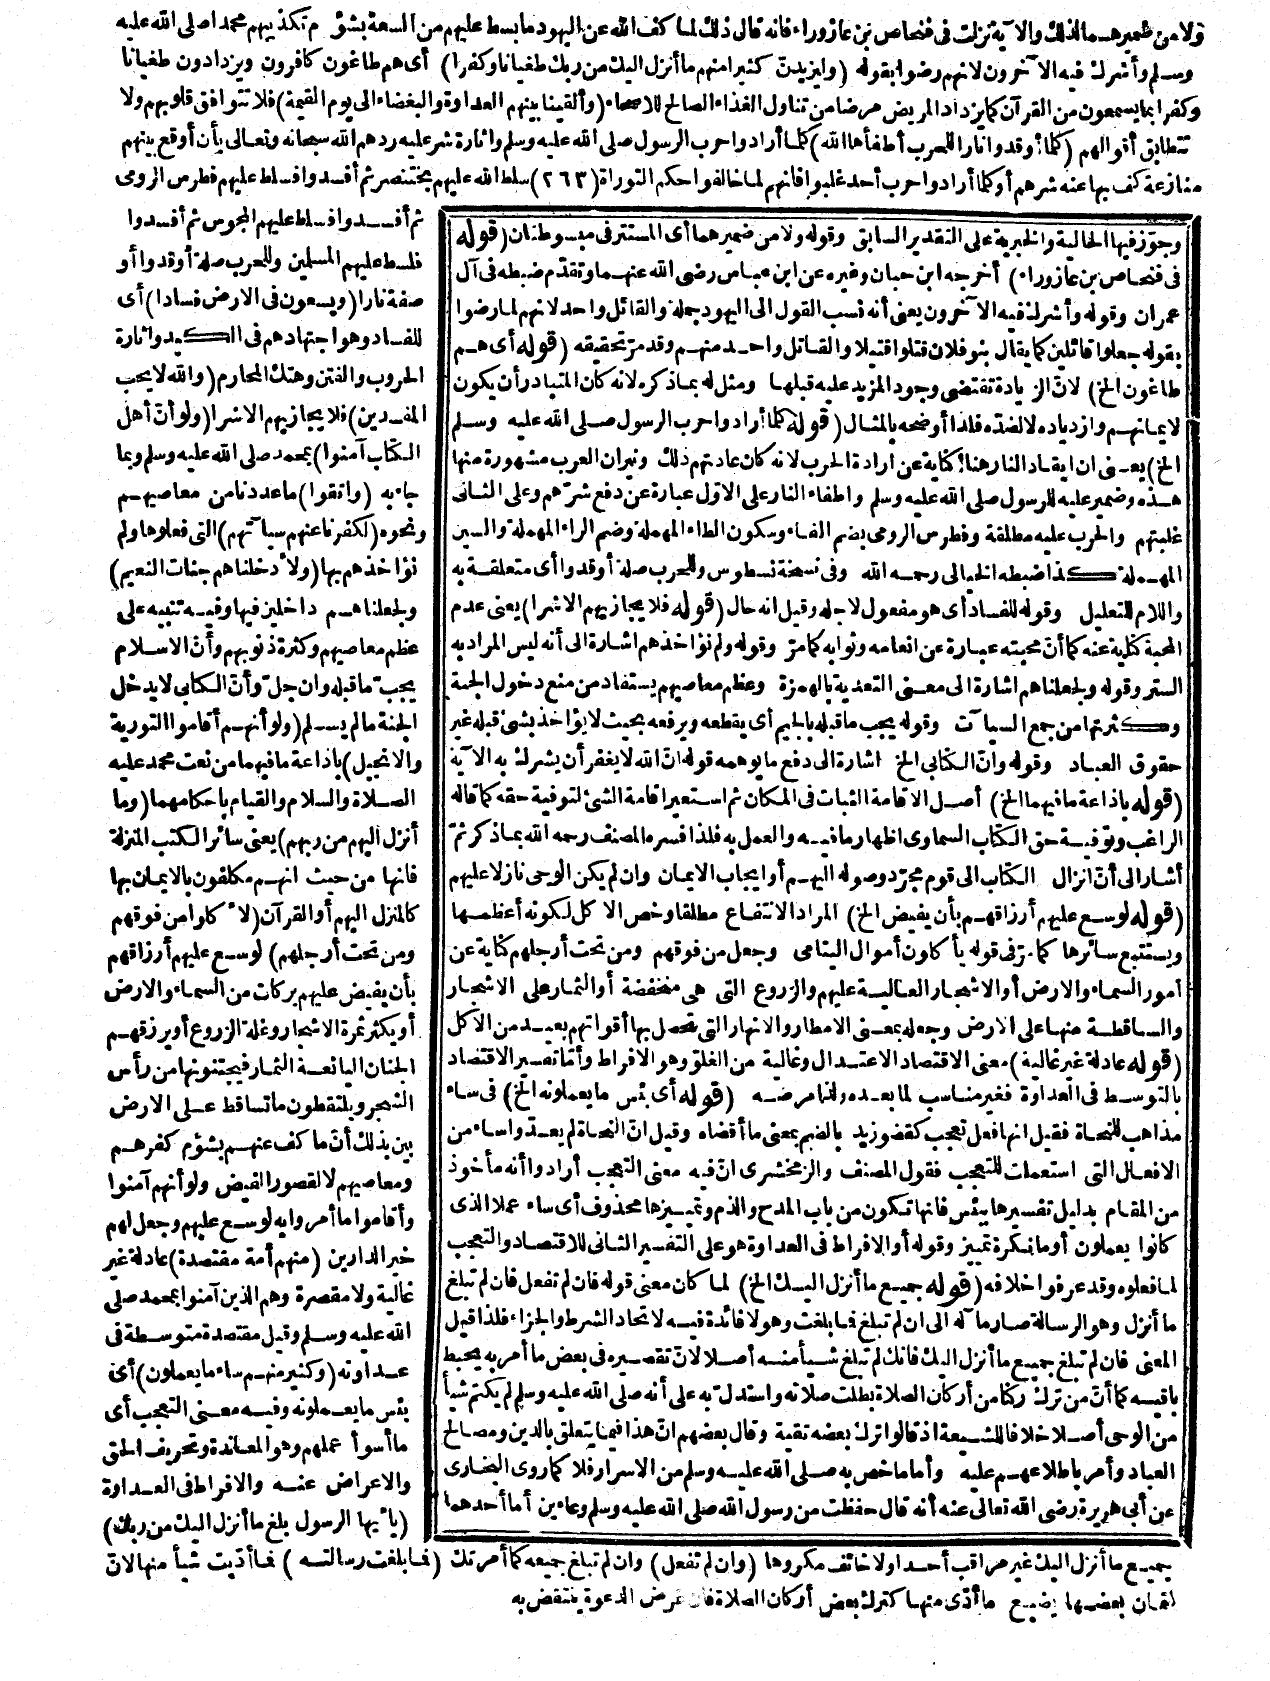 ولا من ضميرهما لذلك والآية نزلت في فنحاص بن عازوراء فانه قال ذلك لما كف الله عن اليهود ما بسط عليهم من السعة بشؤم تكذيبهم محمدا صلى الله عليه
وسلم وأشرك فيه الآخرون لانهم رضوا بقوله (وليزيدن كثيرا منهم ما أنزل اليك من ربك طغيانا وكفرا) أى هم طاغون كافرون ويزدادون طغيانا
وكفرا بما يسمعون من القرآن كما يزداد المريض مرضا من تناول الغذاء الصالح للاصحاء (وألقينا بينهم العداوة والبغضاء الى يوم القيمة) فلا تتوافق قلوبهم ولا
تتطابق أقوالهم (كلما أوقدوا نارا للحرب أطفأها الله) كلما أرادوا حرب الرسول صلى الله عليه وسلم واثارة شر عليه ردهم الله سبحانه وتعالى بأن أوقع بينهم
منازعة كف بها عنه شرهم أو كلما أرادوا حرب أحد غلبوا فانهم لما خالفوا حكم التوراة (٢٦٣) سلط الله عليهم بختنصر ثم أفسدوا فسلط عليهم فطرس الرومى
ثم أفسدوا فسلط عليهم المجوس ثم أفسدوا
فسلط عليهم المسلمين وللحرب صلة أوقدوا أو
صفة نارا (ويسعون فى الارض فسادا) أى
للفساد وهو اجتهادهم فى الكيد واثارة
الحروب والفتن وهتك المحارم (والله لا يحب
المفسدين) فلا يجازيهم الا شرا (ولو أن أهل
الكتاب آمنوا) بمحمد صلى الله عليه وسلم وبما
جاء به (واتقوا) ما عددنا من معاصيهم
ونحوه (لكفرنا عنهم سيآتهم) التى فعلوها ولم
نؤاخذهم بها (ولأدخلناهم جنات النعيم)
ولجعلناهم داخلين فيها وفيه تنبيه على
عظم معاصيهم وكثرة ذنوبهم وأن الاسلام
يجب ما قبله وان جل وأن الكتابى لا يدخل
الجنة ما لم يسلم (ولو أنهم أقاموا التورية
والانجيل) باذاعة ما فيهما من نعت محمد عليه
الصلاة والسلام والقيام بأحكامهما (وما
أنزل اليهم من ربهم) يعنى سائر الكتب المنزلة
فانها من حيث انهم مكلفون بالايمان بها
كالمنزل اليهم أو القرآن (لأكلوا من فوقهم
ومن تحت أرجلهم) لوسع عليهم أرزاقهم
بأن يفيض عليهم بركات من السماء والارض
أو يكثر ثمرة الاشجار وغلة الزروع أو يرزقهم
الجنان اليانعة الثمار فيجتنونها من رأس
الشجر ويلتقطون ما تساقط على الارض
بين بذلك أن ما كف عنهم بشؤم كفرهم
ومعاصيهم لا لقصور الفيض ولو أنهم آمنوا
وأقاموا ما أمروا به لوسع عليهم وجعل لهم
خير الدارين (منهم أمة مقتصدة) عادلة غير
غالية ولا مقصرة وهم الذين آمنوا بمحمد صلى
الله عليه وسلم وقيل مقتصدة متوسطة فى
عداوته (وكثير منهم ساء ما يعملون) أى
بئس ما يعملونه وفيه معنى التعجب أى
ما أسوأ عملهم وهو المعاندة وتحريف الحق
والاعراض عنه والافراط فى العداوة
(يا أيها الرسول بلغ ما أنزل اليك من ربك)
جميع ما أنزل اليك غير مراقب أحدا ولا خائف مكروها (وان لم تفعل) وان لم تبلغ جميعه كما أمرتك (فما بلغت رسالته) فما أديت شيأ منها لان
كتمان بعضها يضيع ما أدّى منها كترك بعض أركان الصلاة فان غرض الدعوة ينتقض به
وجوّز فيها الحالية والخبرية على التقدير السابق وقوله ولا من ضميرهما أى المستتر فى مبسوطتان (قوله
فى فنحاص بن عازوراء) أخرجه ابن حبان وغيره عن ابن عباس رضى الله عنهما وتقدم ضبطه فى آل
عمران وقوله وأشرك فيه الآخرون يعنى أنه نسب القول الى اليهود جملة والقائل واحد لانهم لما رضوا
بقوله جعلوا قائلين كما يقال بنو فلان قتلوا قتيلا والقاتل واحد منهم وقد مرّ تحقيقه (قوله أى هم
طاغون الخ) لان الزيادة تقتضى وجود المزيد عليه قبلها ومثل له بما ذكره لانه كان المتبادر أن يكون
لايمانهم وازدياده لا لضده فلذا أوضحه بالمثال (قوله كلما أرادوا حرب الرسول صلى الله عليه وسلم
الخ) يعنى ان ايقاد النار هنا كناية عن ارادة الحرب لانه كان عادتهم ذلك ونيران العرب مشهورة منها
هذه وضمير عليه للرسول صلى الله عليه وسلم واطفاء النار على الاول عبارة عن دفع شرّهم وعلى الثانى
غلبتهم والحرب عليه مطلقة وفطرس الرومى بضم الفاء وسكون الطاء المهملة وضم الراء المهملة والسين
المهملة كذا ضبطه الخيالى رحمه الله وفى نسخة نسطوس وللحرب صلة أوقدوا أى متعلقة به
واللام للتعليل وقوله للفساد أى هو مفعول لاجله وقيل انه حال (قوله فلا يجازيهم الا شرا) يعنى عدم
المحبة كناية عنه كما أن محبته عبارة عن انعامه وثوابه كما مرّ وقوله ولم نؤاخذهم اشارة الى أنه ليس المراد به
الستر وقوله ولجعلناهم اشارة الى معنى التعدية بالهمزة وعظم معاصيهم يستفاد من منع دخول الجنة
وكثرتها من جمع السيآت وقوله يجب ما قبله بالجيم أى يقطعه ويرفعه بحيث لا يؤاخذ بشئ قبله غير
حقوق العباد وقوله وان الكتابى الخ اشارة الى دفع ما يوهمه قوله ان الله لا يغفر أن يشرك به الآية
(قوله باذاعة ما فيهما الخ) أصل الاقامة الثبات فى المكان ثم استعير اقامة الشئ لتوفية حقه كما قاله
الراغب وتوفية حق الكتاب السماوى اظهار ما فيه والعمل به فلذا فسره المصنف رحمه الله بما ذكر ثم
أشار الى أن انزال الكتاب الى قوم مجرّد وصوله اليهم أو ايجاب الايمان وان لم يكن الوحى نازلا عليهم
(قوله لوسع عليهم أرزاقهم بأن يفيض الخ) المراد الانتفاع مطلقا وخص الاكل لكونه أعظمها
ويستتبع سائرها كما مرّ فى قوله يأكلون أموال اليتامى وجعل من فوقهم ومن تحت أرجلهم كناية عن
أمور السماء والارض أو الاشجار العالية عليهم والزروع التى هى منخفضة أو الثمار على الاشجار
والساقطة منها على الارض وجعله بمعنى الامطار والانهار التى تحصل بها أقواتهم بعيد من الاكل
(قوله عادلة غير غالية) معنى الاقتصاد الاعتدال وغالية من الغلوّ وهو الافراط وأما تفسير الاقتصاد
بالتوسط فى العداوة فغير مناسب لما بعده ولذا مرضه (قوله أى بئس ما يعملونه الخ) فى ساء
مذاهب للنحاة فقيل انها فعل تعجب كقضو زيد بالضم بمعنى ما أقضاه وقيل ان النحاة لم يعدوا ساء من
الافعال التى استعملت للتعجب فقول المصنف والزمخشرى ان فيه معنى التعجب أرادوا أنه مأخوذ
من المقام بدليل تفسيرها ببئس فانها تكون من باب المدح والذم وتمييزها محذوف أى ساء عملا الذى
كانوا يعملون أو ما نكرة تمييز وقوله أو الافراط فى العداوة هو على التفسير الثانى للاقتصاد والتعجب
لما فعلوه وقد عرفوا خلافه (قوله جميع ما أنزل اليك الخ) لما كان معنى قوله فان لم تفعل فان لم تبلغ
ما أنزل وهو الرسالة صار مآله الى ان لم تبلغ فما بلغت وهو لا فائدة فيه لاتحاد الشرط والجزاء فلذا قيل
المعنى فان لم تبلغ جميع ما أنزل اليك فانك لم تبلغ شيأ منه أصلا لان تقصيره فى بعض ما أمر به يحبط
باقيه كما أن من ترك ركنا من أركان الصلاة بطلت صلاته واستدل به على أنه صلى الله عليه وسلم لم يكتم شيأ
من الوحى أصلا خلافا للشيعة اذ قالوا ترك بعضه تقية وقال بعضهم ان هذا فيما يتعلق بالدين ومصالح
العباد وأمر باطلاعهم عليه وأما ما خص به صلى الله عليه وسلم من الاسرار فلا كما روى البخارى
عن أبى هريرة رضى الله تعالى عنه أنه قال حفظت من رسول الله صلى الله عليه وسلم وعاءين أما أحدهما